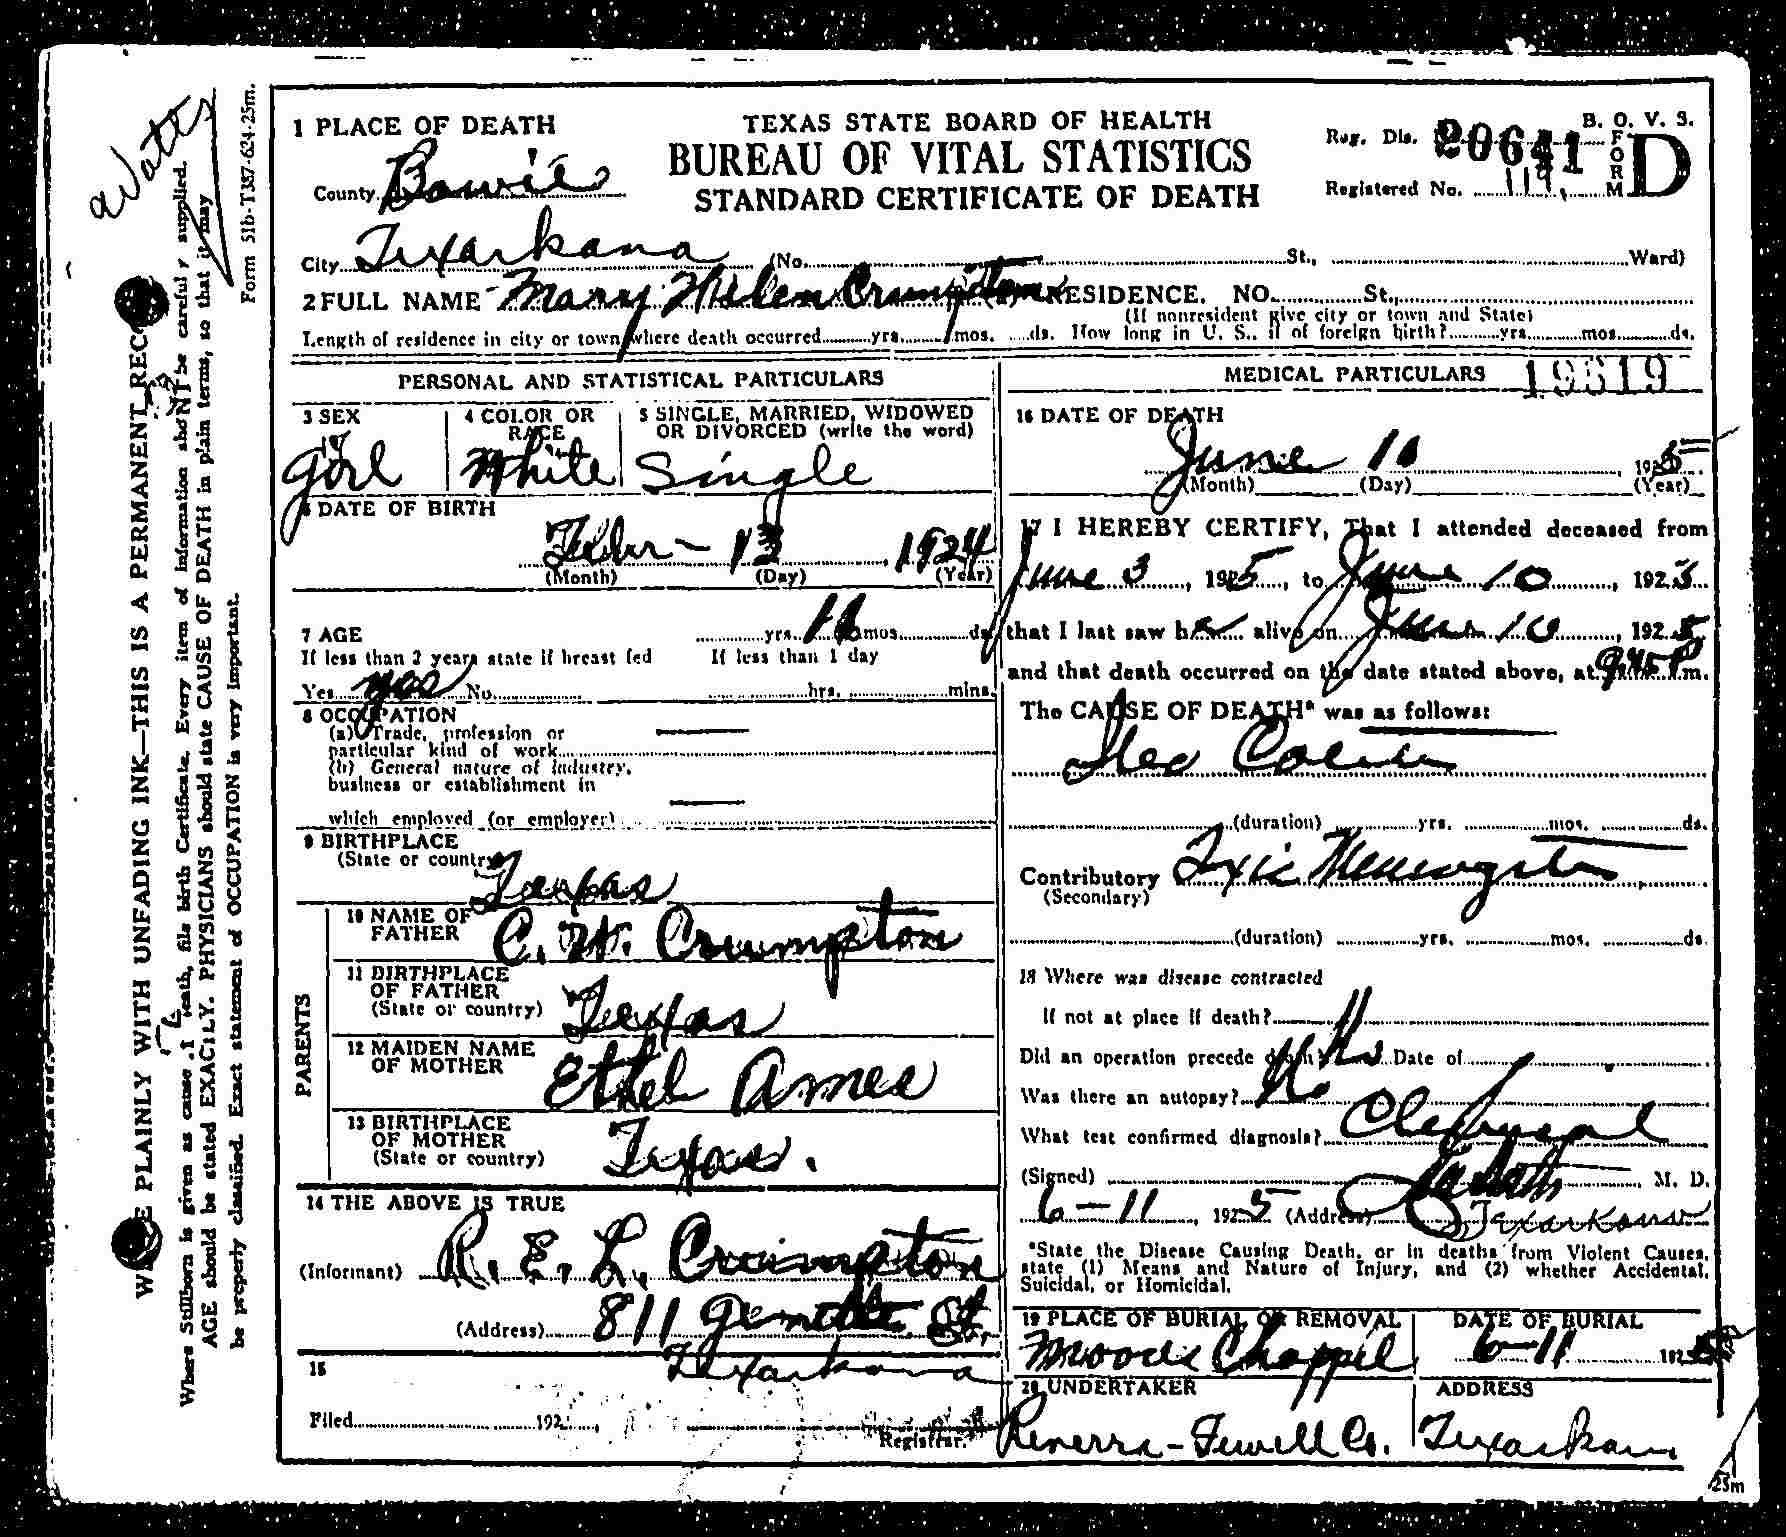 Watts
WRITE PLAINLY WITH UNFADING INK—THIS IS A PERMANENT RECO
Where Stillborn is given as cause death, file birth Certificate. Every item of information be carefully supplied.
AGE should be stated EXACTLY. PHYSICIANS should state CAUSE OF DEATH in plain terms, so that it may
be properly classified. Exact statement of OCCUPATION is very important.
Form 51b-T387-624-25m.
TEXAS STATE BOARD OF HEALTH
BUREAU OF VITAL STATISTICS
STANDARD CERTIFICATE OF DEATH
B. O. V. S.
FORM D
Reg. Dis. 20641
Registered No.
1 PLACE OF DEATH
County Bowie
City Texarkana (No. St., Ward)
2 FULL NAME Mary Helen Crumpton RESIDENCE. NO. St.,
(If nonresident give city or town and State)
Length of residence in city or town where death occurred yrs. mos. ds. How long in U. S., if of foreign birth? yrs. mos. ds.
PERSONAL AND STATISTICAL PARTICULARS
3 SEX
Girl
4 COLOR OR RACE
White
5 SINGLE, MARRIED, WIDOWED OR DIVORCED (write the word)
Single
6 DATE OF BIRTH
Febr- 13, 1924
(Month) (Day) (Year)
7 AGE yrs. mos. ds.
If less than 2 years state if breast fed If less than 1 day
Yes yes No hrs. mins.
8 OCCUPATION
(a) Trade, profession or
particular kind of work
(b) General nature of industry,
business or establishment in
which employed (or employer)
9 BIRTHPLACE
(State or country)
Texas
PARENTS
10 NAME OF FATHER
C. W. Crumpton
11 BIRTHPLACE OF FATHER
(State or country)
Texas
12 MAIDEN NAME OF MOTHER
Ethel Ames
13 BIRTHPLACE OF MOTHER
(State or country)
Texas.
14 THE ABOVE IS TRUE
(Informant) R. E. L. Crumpton
(Address) 811 St.
Texarkana
15
Filed 192
Registrar.
MEDICAL PARTICULARS 19619
16 DATE OF DEATH
June 10, 1925
(Month) (Day) (Year)
17 I HEREBY CERTIFY, That I attended deceased from
June 3, 1925, to June 10, 1925
that I last saw her alive on June 10, 1925
and that death occurred on the date stated above, at 9:45 P. m.
The CAUSE OF DEATH* was as follows:
Ileo Colitis
(duration) yrs. mos. ds.
Contributory Toxic Meningitis
(Secondary)
(duration) yrs. mos. ds.
18 Where was disease contracted
If not at place if death?
Did an operation precede death? No Date of
Was there an autopsy? No
What test confirmed diagnosis?
(Signed) M. D.
6-11, 1925 (Address) Texarkana
*State the Disease Causing Death, or in deaths from Violent Causes,
state (1) Means and Nature of Injury, and (2) whether Accidental,
Suicidal, or Homicidal.
19 PLACE OF BURIAL OR REMOVAL
Moores Chappel
DATE OF BURIAL
6-11 192
20 UNDERTAKER
Fewell Co.
ADDRESS
Texarkana
25m